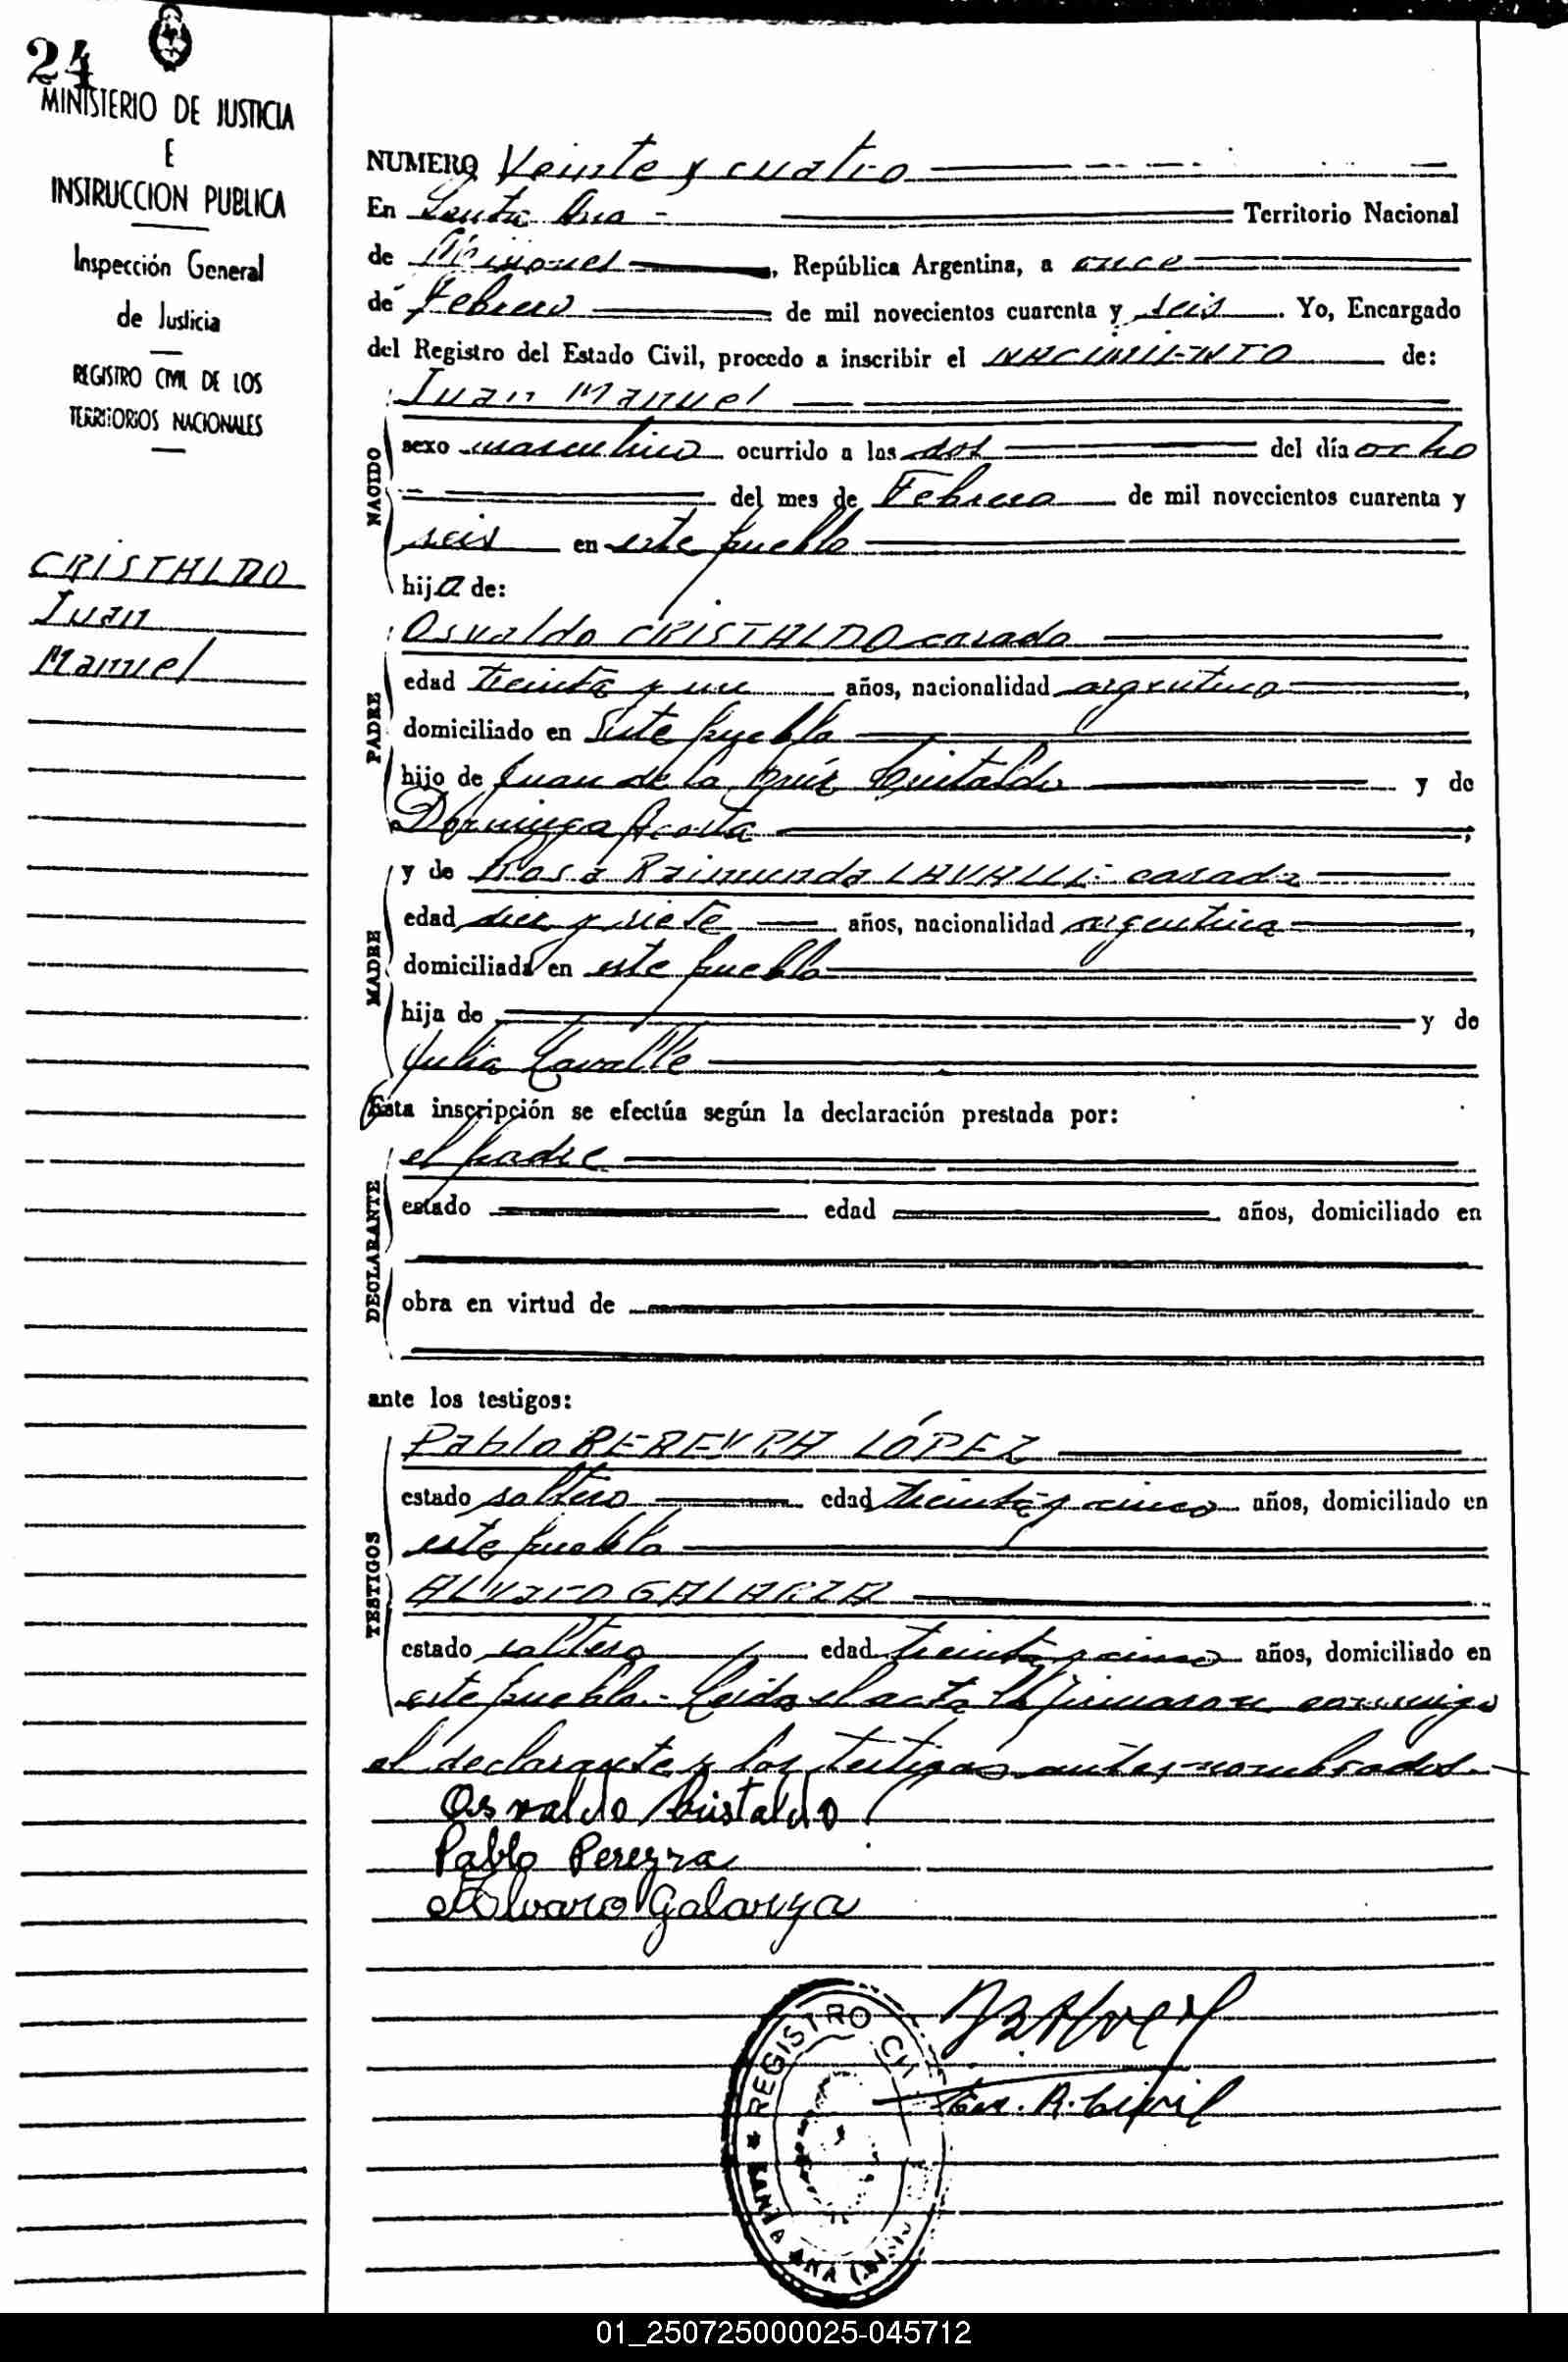 24
MINISTERIO DE JUSTICIA
E
INSTRUCCION PUBLICA
Inspección General
de Justicia
REGISTRO CIVIL DE LOS
TERRITORIOS NACIONALES
CRISTALDO
Juan
Manuel
NUMERO Veinte y cuatro
En Santa Ana - Territorio Nacional
de Misiones, República Argentina, a once
de Febrero de mil novecientos cuarenta y seis. Yo, Encargado
del Registro del Estado Civil, procedo a inscribir el NACIMIENTO de:
Juan Manuel
NACIDO
sexo masculino ocurrido a las dos del día ocho
del mes de Febrero de mil novecientos cuarenta y
seis en este pueblo
hijo de:
PADRE
Osvaldo CRISTALDO casado
edad treinta y un años, nacionalidad argentina,
domiciliado en este pueblo
hijo de Juan de la Cruz Cristaldo y de
Dominga Acosta,
MADRE
y de Rosa Raimunda LAVALLE casada
edad diez y siete años, nacionalidad argentina,
domiciliada en este pueblo
hija de y de
Julia Lavalle
Esta inscripción se efectúa según la declaración prestada por:
DECLARANTE
el padre
estado edad años, domiciliado en
obra en virtud de
ante los testigos:
TESTIGOS
Pablo PEREYRA LÓPEZ
estado soltero edad treinta y cinco años, domiciliado en
este pueblo
ALvaro GALARZA
estado soltero edad treinta y cinco años, domiciliado en
este pueblo.- Leida el acta la firmaron conmigo
el declarante y los testigos antes nombrados.-
Osvaldo Cristaldo
Pablo Pereyra
Alvaro Galarza
Enc. R. Civil
REGISTRO CIVIL
SANTA ANA
01_250725000025-045712